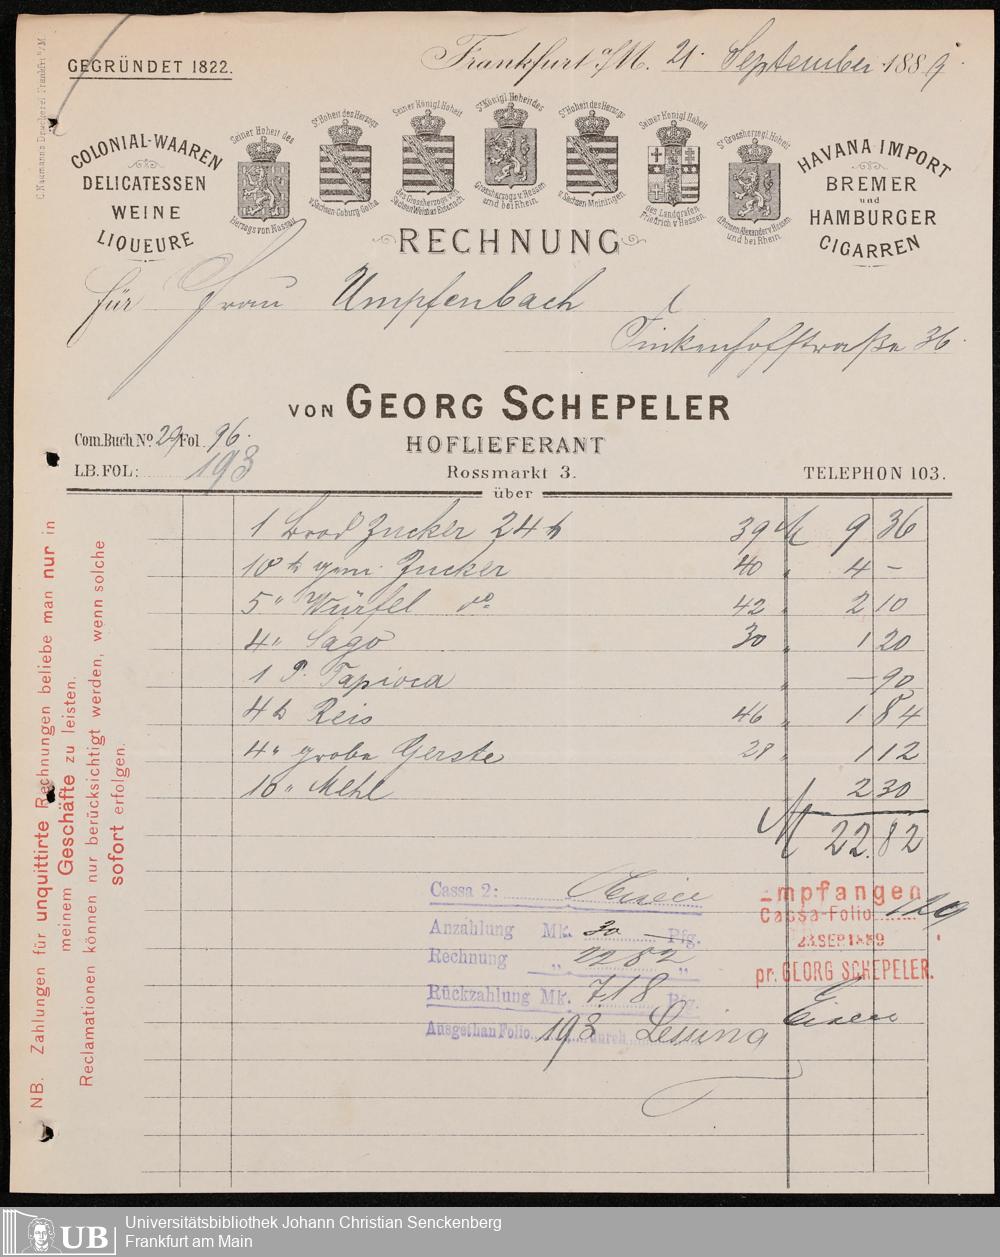 C. Naumann's Druckerei Frankfurt a/M.
GEGRÜNDET 1822.
Frankfurt a/M. 21. September 1889.
COLONIAL-WAAREN
DELICATESSEN
WEINE
LIQUEURE
Seiner Hoheit des
Herzogs von Nassau.
Sr. Hoheit des Herzogs
v. Sachsen Coburg Gotha
Seiner Königl. Hoheit
des Grossherzogs von
Sachsen Weimar Eisenach.
Sr. Königl. Hoheit des
Grossherzogs v. Hessen
und bei Rhein.
Sr. Hoheit des Herzogs
v. Sachsen Meiningen.
Seiner Königl. Hoheit
des Landgrafen
Friedrich v. Hessen.
Sr. Grossherzogl. Hoheit
d. Prinzen Alexander v. Hessen
und bei Rhein.
HAVANA IMPORT
BREMER
und
HAMBURGER
CIGARREN
RECHNUNG
für Frau Umpfenbach
Finkenhofstraße 36.
VON GEORG SCHEPELER
HOFLIEFERANT
Rossmarkt 3.
Com. Buch No. 29 Fol. 96.
L.B. FOL: 193
TELEPHON 103.
über
1 Brod Zucker 24 ℔ 39 M 9 36
10 ℔ gem. Zucker 40 " 4 –
5 " Würfel do. 42 " 2 10
4 " Sago 30 " 1 20
1 P. Tapioca " – 90
4 ℔ Reis 46 " 1 84
4 " grobe Gerste 28 " 1 12
10 " Mehl 2 30
M 22.82
Cassa 2:
Anzahlung Mk. 30 – Pfg.
Rechnung " 22 82 "
Rückzahlung Mk. 7.18 Pfg.
Ausgethan Folio 193 durch Lessing
Empfangen
Cassa-Folio 129
23. SEP 1889
pr. GEORG SCHEPELER.
NB. Zahlungen für unquittirte Rechnungen beliebe man nur in
meinem Geschäfte zu leisten.
Reclamationen können nur berücksichtigt werden, wenn solche
sofort erfolgen.
UB
Universitätsbibliothek Johann Christian Senckenberg
Frankfurt am Main